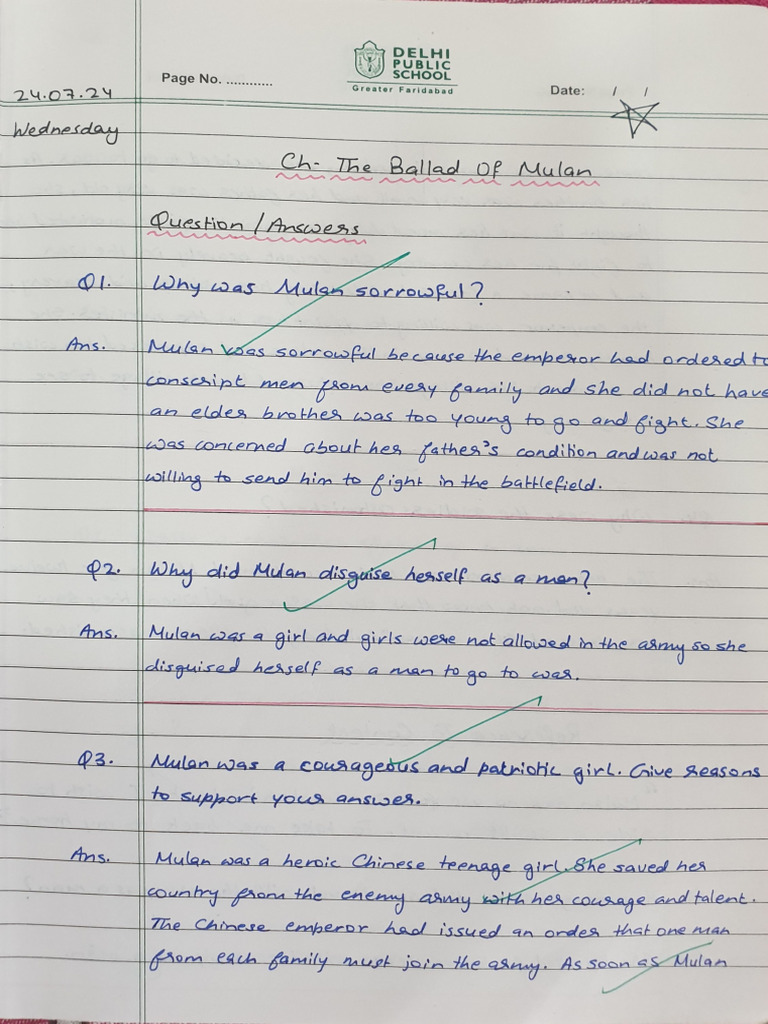 DELHI
PUBLIC
SCHOOL
Greater Faridabad
Page No. ............
Date: / /
24.07.24
Wednesday
Ch- The Ballad Of Mulan
Question / Answers
Q1. Why was Mulan sorrowful?
Ans. Mulan was sorrowful because the emperor had ordered to
conscript men from every family and she did not have
an elder brother was too young to go and fight. She
was concerned about her father's condition and was not
willing to send him to fight in the battlefield.
Q2. Why did Mulan disguise herself as a man?
Ans. Mulan was a girl and girls were not allowed in the army so she
disguised herself as a man to go to war.
Q3. Mulan was a courageous and patriotic girl. Give reasons
to support your answer.
Ans. Mulan was a heroic Chinese teenage girl. She saved her
country from the enemy army with her courage and talent.
The Chinese emperor had issued an order that one man
from each family must join the army. As soon as Mulan